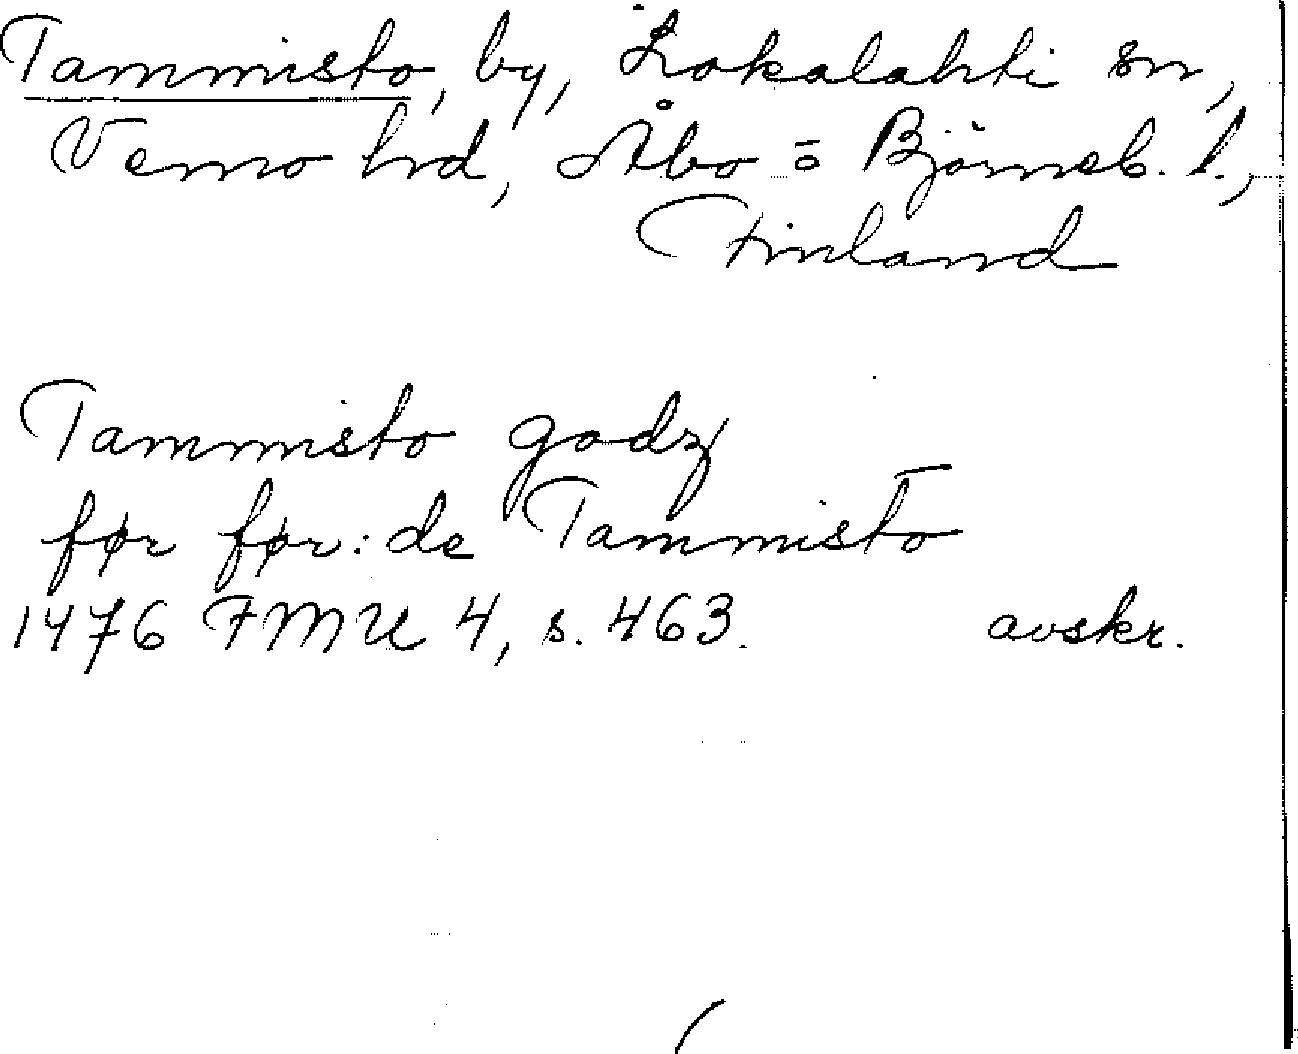 Tammisto, by, Lokalahti sn,
Vemo hrd, Åbo o Björneb. l.,
Finland
Tammisto godz
før før: de Tammisto
1476 FMU 4, s. 463. avskr.